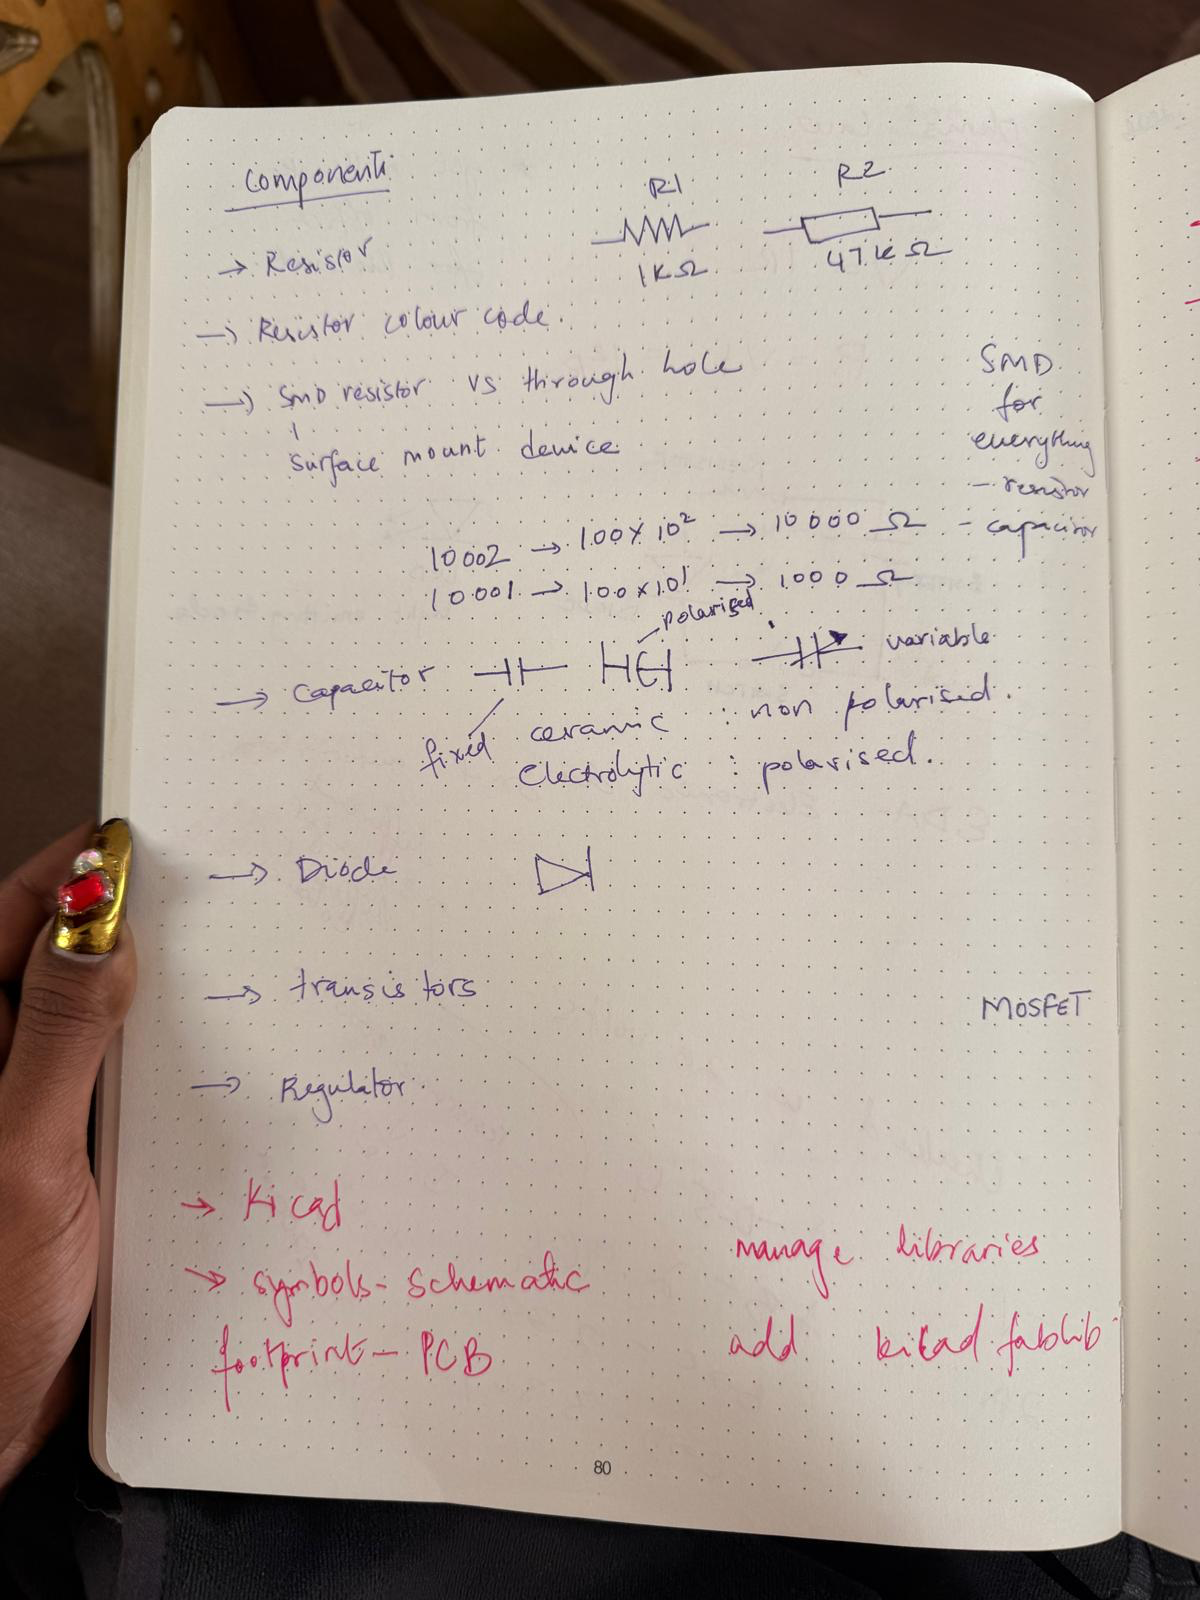 Components
R1 R2
→ Resistor
1KΩ 47KΩ
→ Resistor colour code.
→ SMD resistor vs through hole
surface mount device
SMD
for
everything
- resistor
- capacitor
10002 → 100 x 10² → 10000 Ω
10001 → 100 x 10¹ → 1000 Ω
polarised
→ Capacitor
variable
fixed
ceramic : non polarised.
Electrolytic : polarised.
→ Diode
→ transistors
MOSFET
→ Regulator.
→ Kicad
→ symbols - schematic
footprint - PCB
manage libraries
add kikad fablib
80